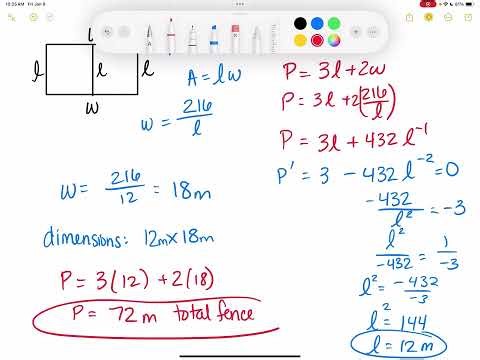 10:25 AM Fri Jan 6
61%
w
l l l
w
A = lw
w = 216/l
w = 216/12 = 18m
dimensions: 12m x 18m
P = 3(12) + 2(18)
P = 72 m total fence
P = 3l + 2w
P = 3l + 2(216/l)
P = 3l + 432 l⁻¹
P' = 3 - 432 l⁻² = 0
-432/l² = -3
l²/-432 = 1/-3
l² = -432/-3
l² = 144
l = 12 m